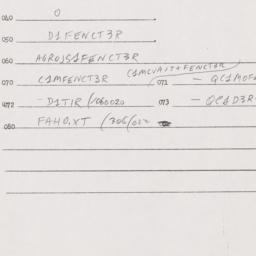 040 0
050 D1FENCT3R
060 AGROJS1FENCT3R
C1MCVAIT+FENCT3R
070 C1MFENCT3R 071 - QC1MOF
072 - D1TIR / 060020 073 - QC1D3R-
080 FAHO.XT / 306/012